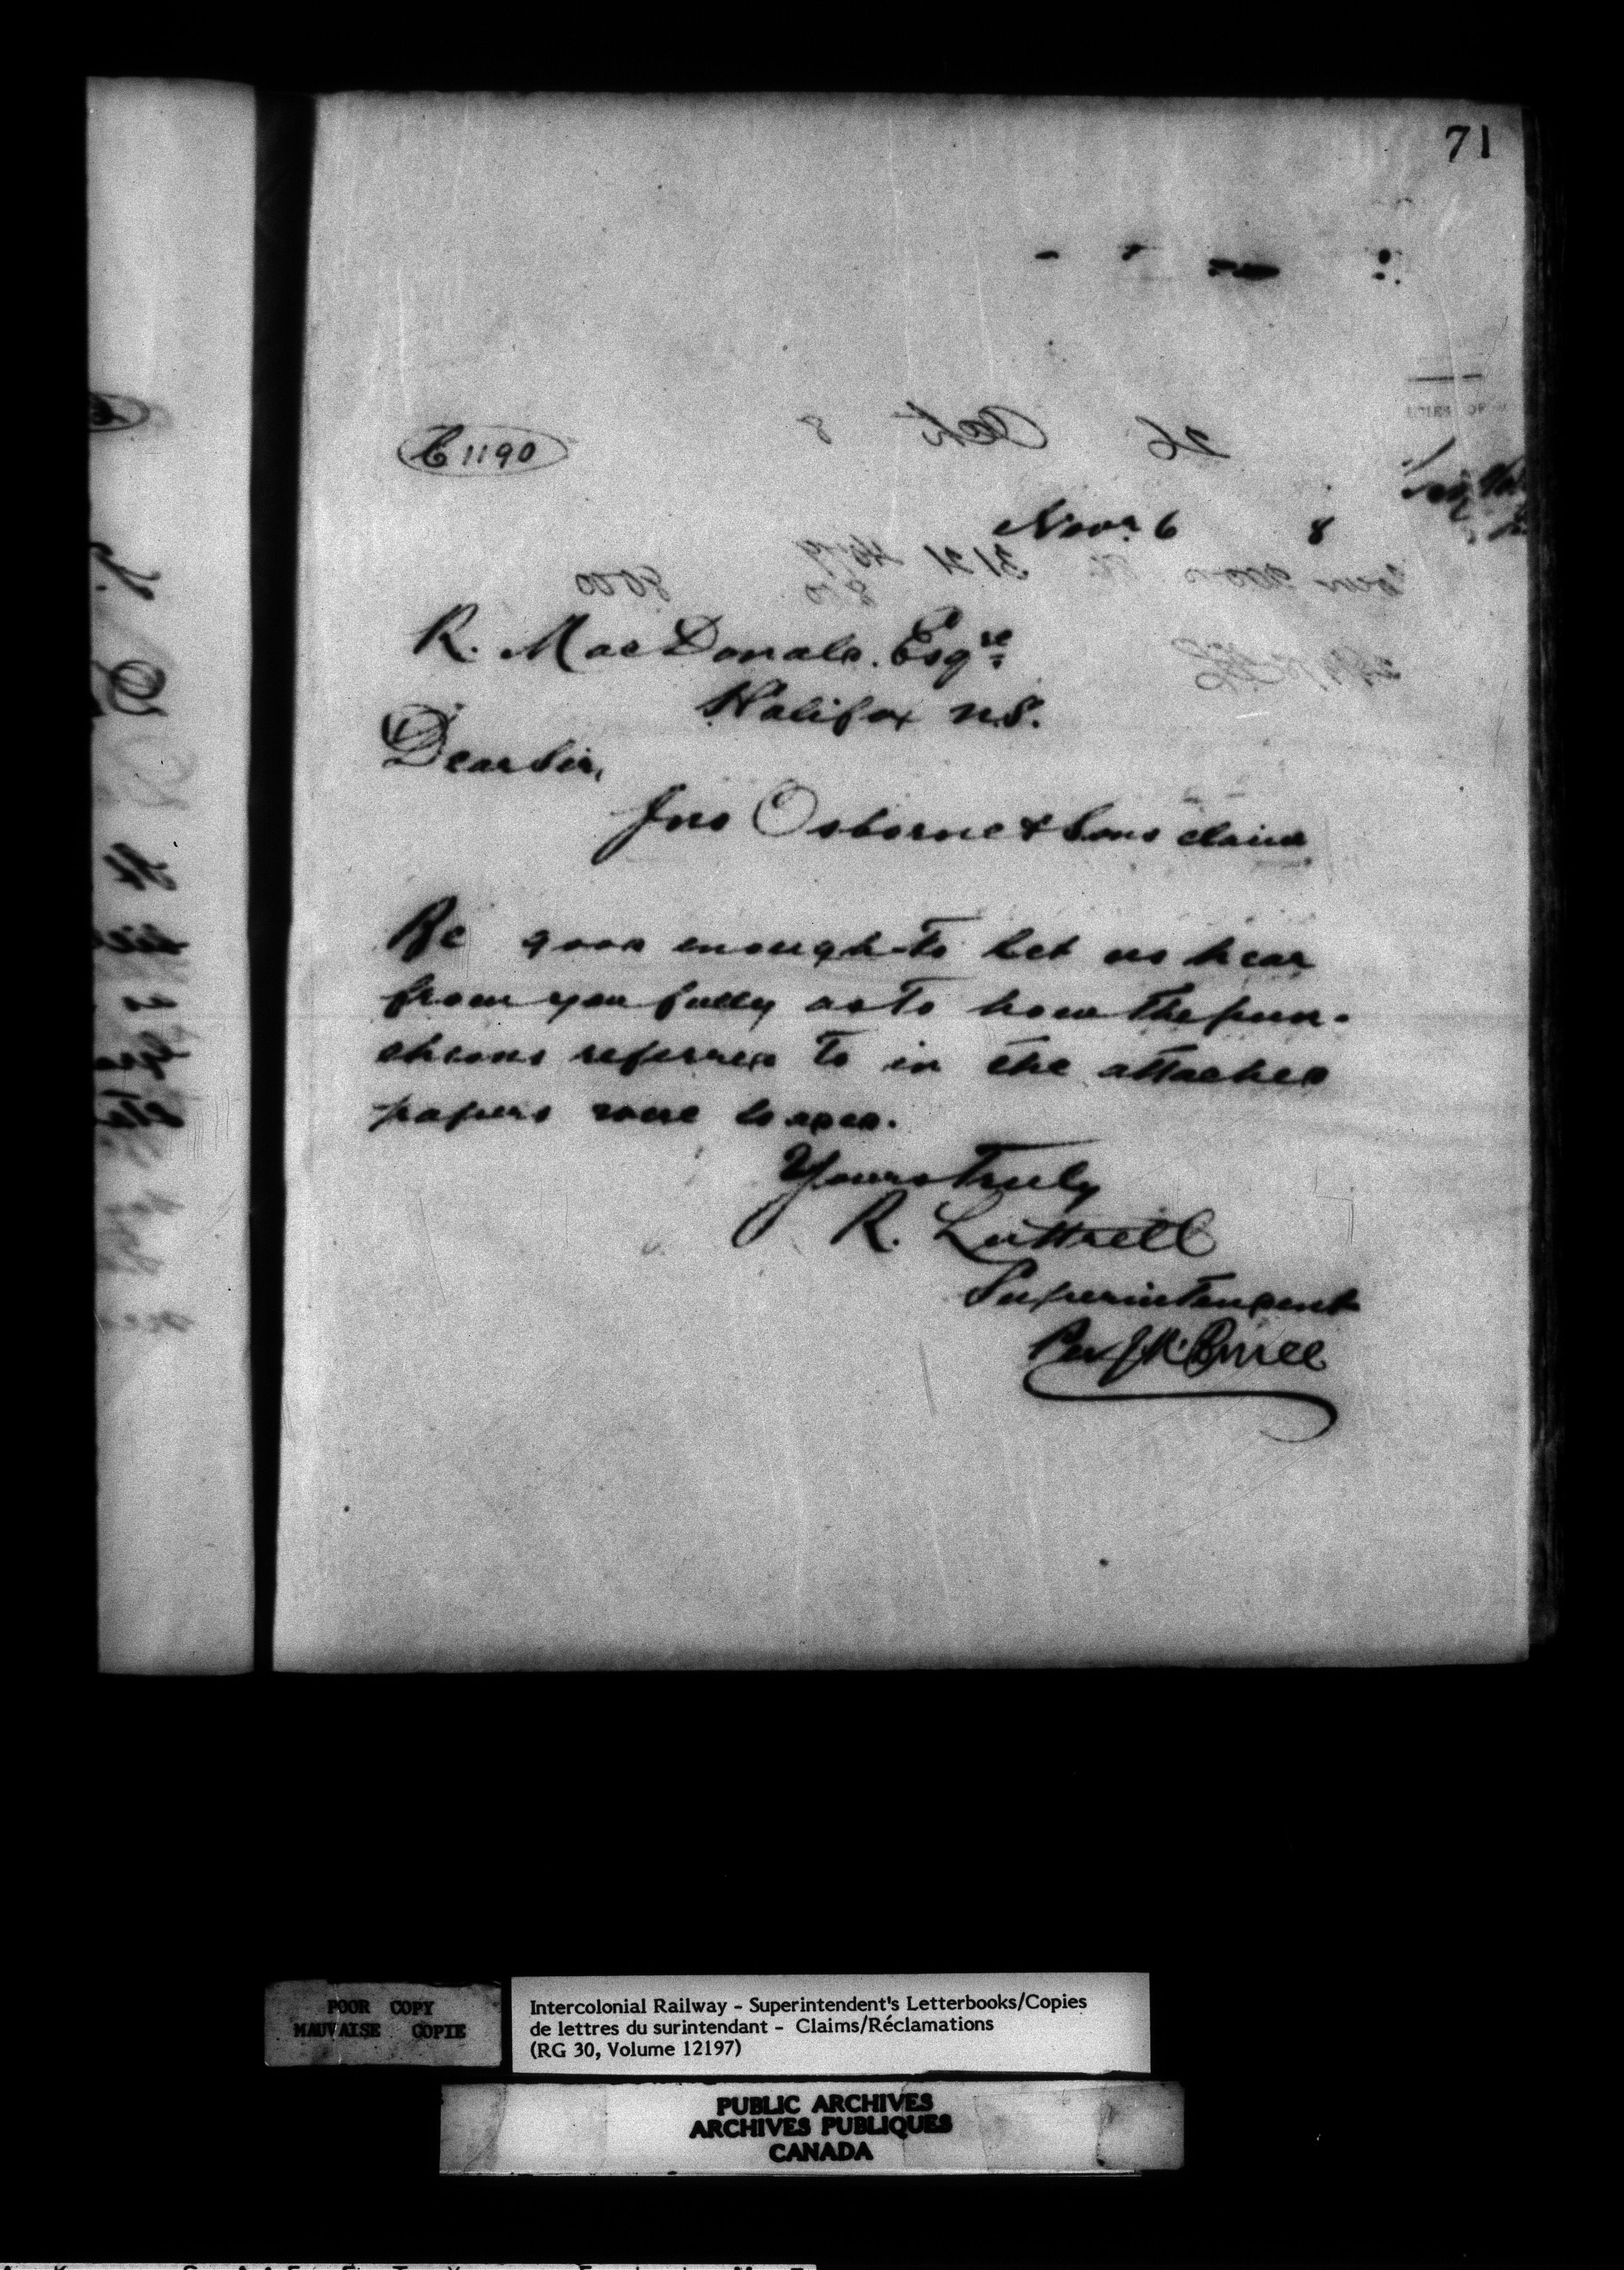 71
C 1190
Novr. 6 8
R. MacDonald. Esqre
Halifax N.S.
Dear Sir,
Jno Osborne & Sons claim
Be good enough to let us hear
from you fully as to how the pun-
cheons referred to in the attached
papers were loaded.
Yours truly
R. Luttrell
Superintendent
Per
POOR COPY
MAUVAISE COPIE
Intercolonial Railway - Superintendent's Letterbooks/Copies
de lettres du surintendant - Claims/Réclamations
(RG 30, Volume 12197)
PUBLIC ARCHIVES
ARCHIVES PUBLIQUES
CANADA